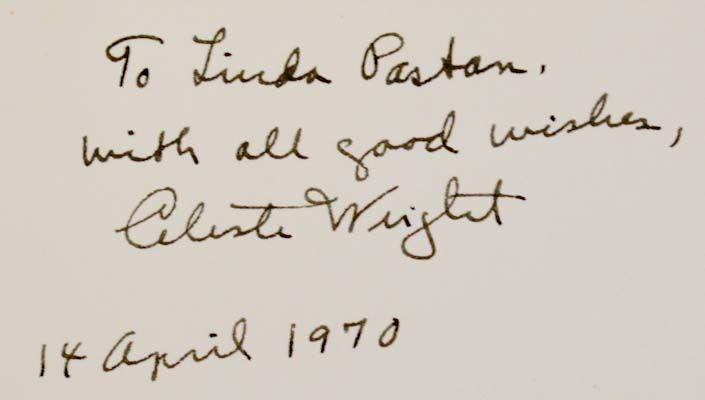 To Linda Pastan,
with all good wishes,
Celeste Wright
14 April 1970